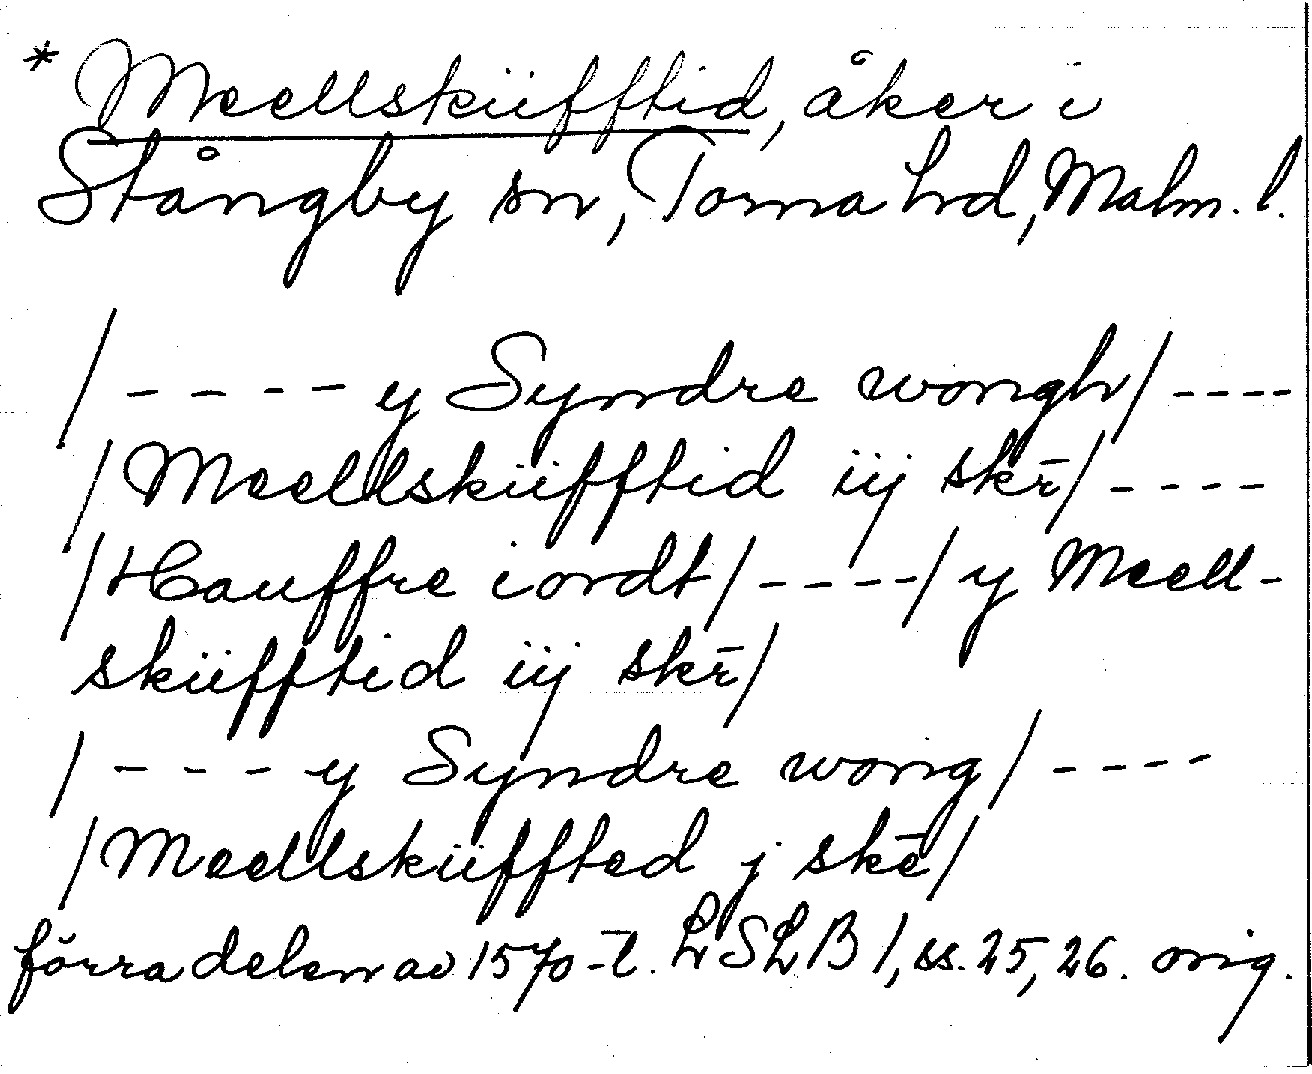 * Meellskiifftid, åker i
Stångby sn, Torna hrd, Malm. l.
/ - - - - y Syndre wongh / - - - -
/ Meellskiifftid iij skr̄ / - - - -
/ Hauffre iordt / - - - - / y Meell-
skiifftid iij skr̄ /
/ - - - y Syndre wong / - - - -
/ Meellskiiffted j skē /
förra delen av 1570-t. LSLB 1, ss. 25, 26. orig.